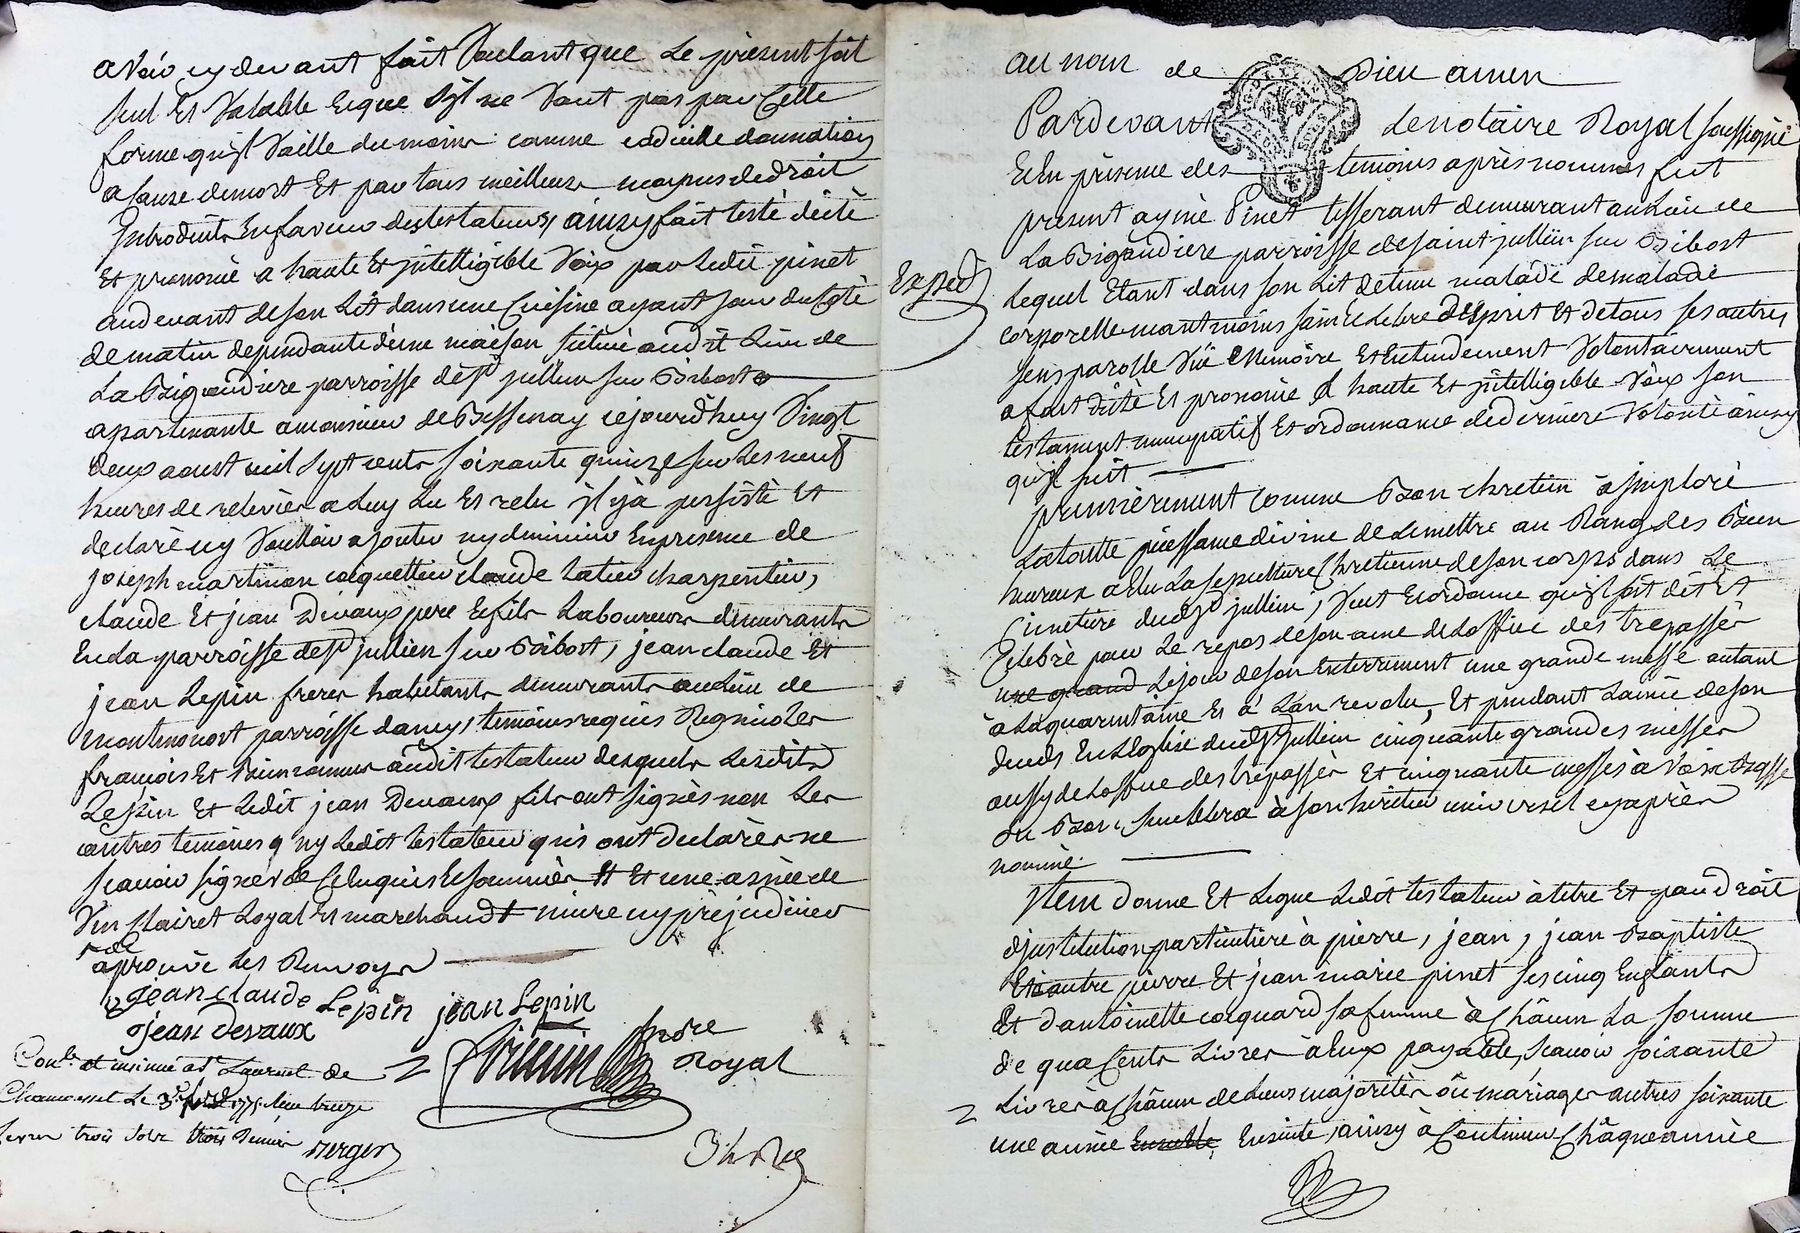 avoir cy devant fait Voulant que Le present soit
seul Et Valable Et que s'il ne Vaut pas par Cette
forme qu'il Vaille du moins comme codicille donnation
a Cause de mort Et par tous meilleurs moyens de droit
Introduits En faveur des testateurs, ainsy fait testé dicté
Et prononcé a haute Et jntelligible Voix par Ledit pinet
au devant de son Lit dans une Cuisine ayant jour du Coté
de matin dependante d'une maison sittuée audit Lieu de
La Bigaudiere parroisse de st jullien sur Bibost
apartenante a monsieur de Bessenay cejourd'huy Vingt
deux aoust mil sept cents soixante quinze sur Les neuf
heures de relevée a Luy Lu Et relu jl y a persisté Et
declaré ny Vouloir ajouter ny diminuer En presence de
joseph martinon coquettier claude Ratier charpentier,
claude Et jean Devaux pere Et fils Laboureurs demeurants
En La parroisse de st jullien sur Bibost, jean claude Et
jean Lepin freres habitants demeurants au Lieu de
montmonost parroisse dancy, temoins requis Regnicoles
françois Et Bien connus audit testateur desquels Lesdits
Lepin Et Ledit jean Devaux fils ont signés non Les
autres temoins ny Ledit testateur qui ont declarés ne
scavoir signer de Ce Enquis Et sommés Et une asnée de
Vin Clairet Loyal Et marchand mure ny prejudicier
aprouvé Les Renvoys
jean claude Lepin jean Lepin
jean devaux
Nore
Royal
Conlé et insinué a st Laurent de
Chamousset Le 3e treize
Livres trois sols trois deniers
verger
au nom de Dieu amen
Pardevant Le notaire Royal soussigné
Et En présence des temoins après nommés fut
present aymé Pinet tisserant demeurant au Lieu de
La Bigaudiere parroisse de saint jullien sur Bibost
Exped
Lequel Etant dans son Lit detenu malade de maladie
corporelle neantmoins sain Et Libre d'Esprit Et de tous ses autres
sens parolle Vüe Memoire Et Entendement Volontairement
a fait dicté Et prononcé a haute Et jntelligible Voix son
testament nuncupatif Et ordonnance de derniere Volonté ainsy
qu'il suit
premièrement comme Bon chretien a jmploré
La toutte puissance divine de Le mettre au Rang des Bien
heureux a Elu La sepulture Chretienne de son corps dans Le
Cimetiere dudit st jullien, Veut Et ordonne qu'il soit dit Et
Celebré pour Le repos de son ame de Loffice des trepassés
une grand Le jour de son Enterrement une grande messe autant
à La quarantaine Et à L'an revolu, Et pendant L'année de son
deuils En L'Eglise dudit st jullien cinquante grandes messes
aussy de Loffice des trépassés Et cinquante messes à Voix Basse
ou Bon semblera à son héritier universel cy après
nommé
Item donne Et Legue Ledit testateur à titre Et par droit
d'jnstitution particuliere à pierre, jean, jean Baptiste
Et autre pierre Et jean marie pinet ses cinq Enfants
Et d'antoinette coquard sa femme à Châcun La somme
de quatre Cents Livres à Eux payable, scavoir soixante
Livres à Châcun de Leurs majorités ou mariages autres soixante
une année Ensuitte Ensuite, ainsy à Continuer Châque année